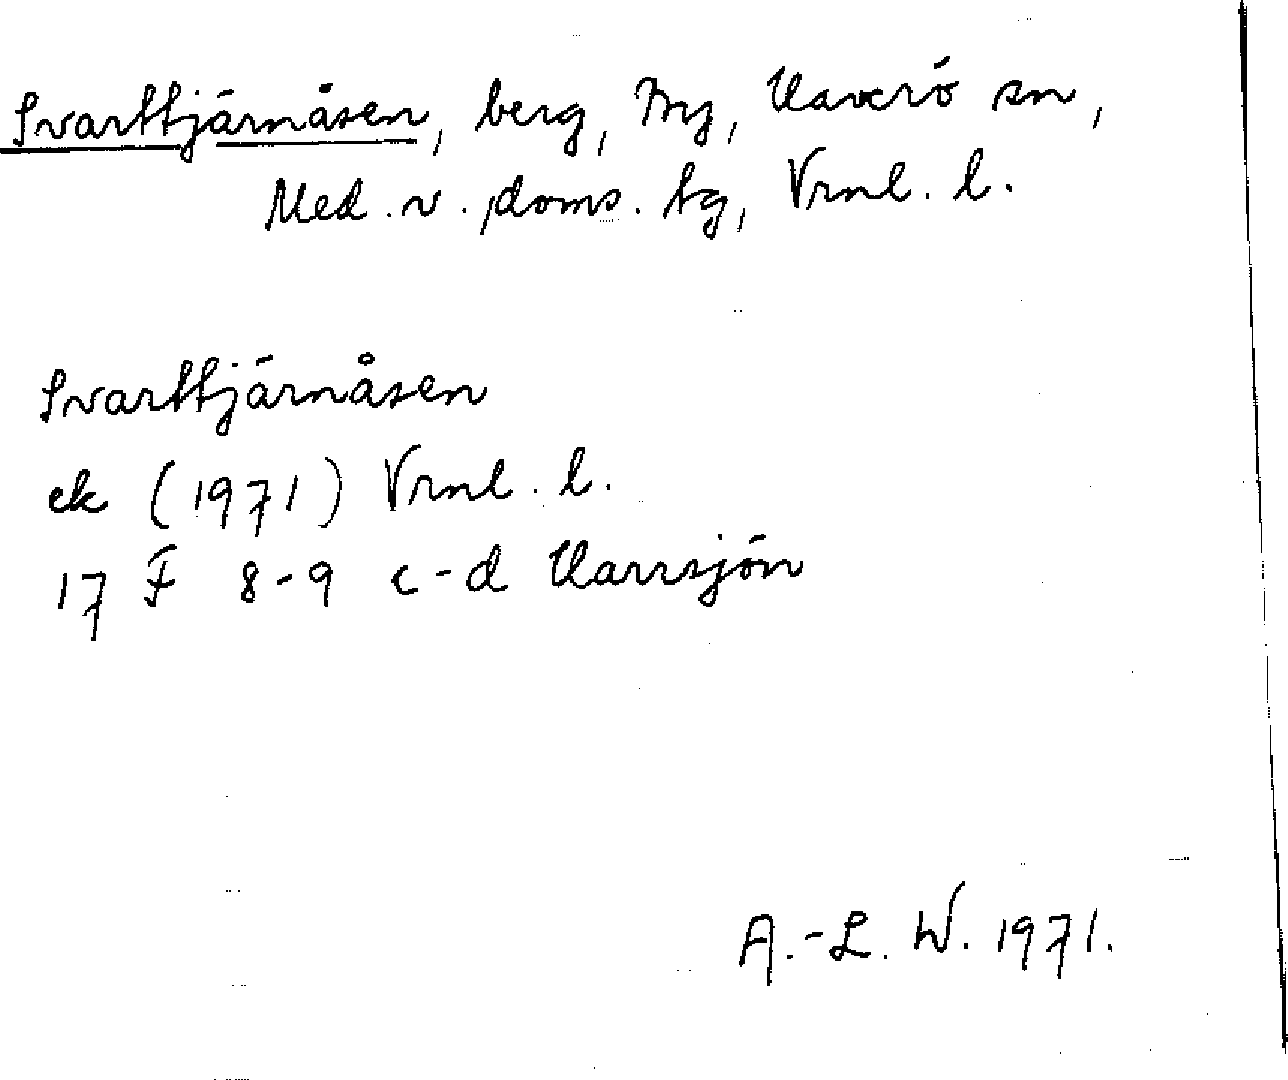 Svarttjärnåsen, berg, By, Haverö sn,
Med. v. doms. tg, Vrnl. l.
Svarttjärnåsen
ek (1971) Vrnl. l.
17 F 8-9 c-d Harrsjön
A.-L. W. 1971.